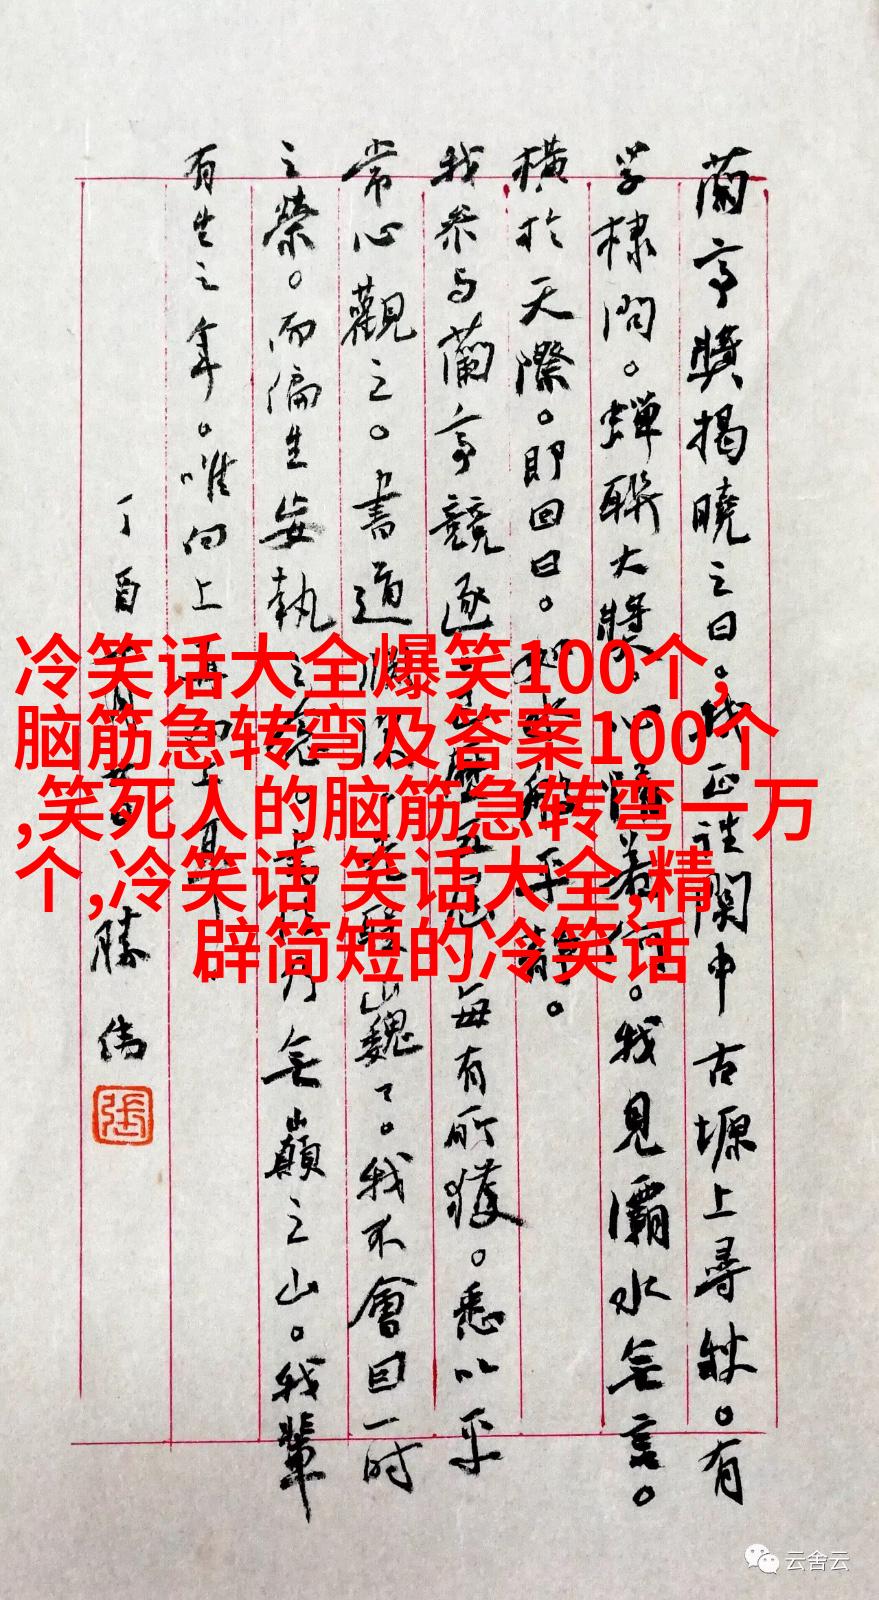 蘭亭獎揭曉之日。我正 關中古塬上尋秋。有
学棣問。蟬聯大獎。心情若何。我見灞水無言。
橫於天際。即回曰。如水般平靜。
我參与蘭亭競逐 每有所獲。悉以平
常心觀之。書道 山巍々。我不會因一时
之榮。而偏生妄執之念。書 乃無巔之山。我輩
有生之年。唯向上
丁酉 勝偉
張
冷笑话大全爆笑100个,
脑筋急转弯及答案100个
,笑死人的脑筋急转弯一万
个,冷笑话 笑话大全,精
辟简短的冷笑话
云舍云